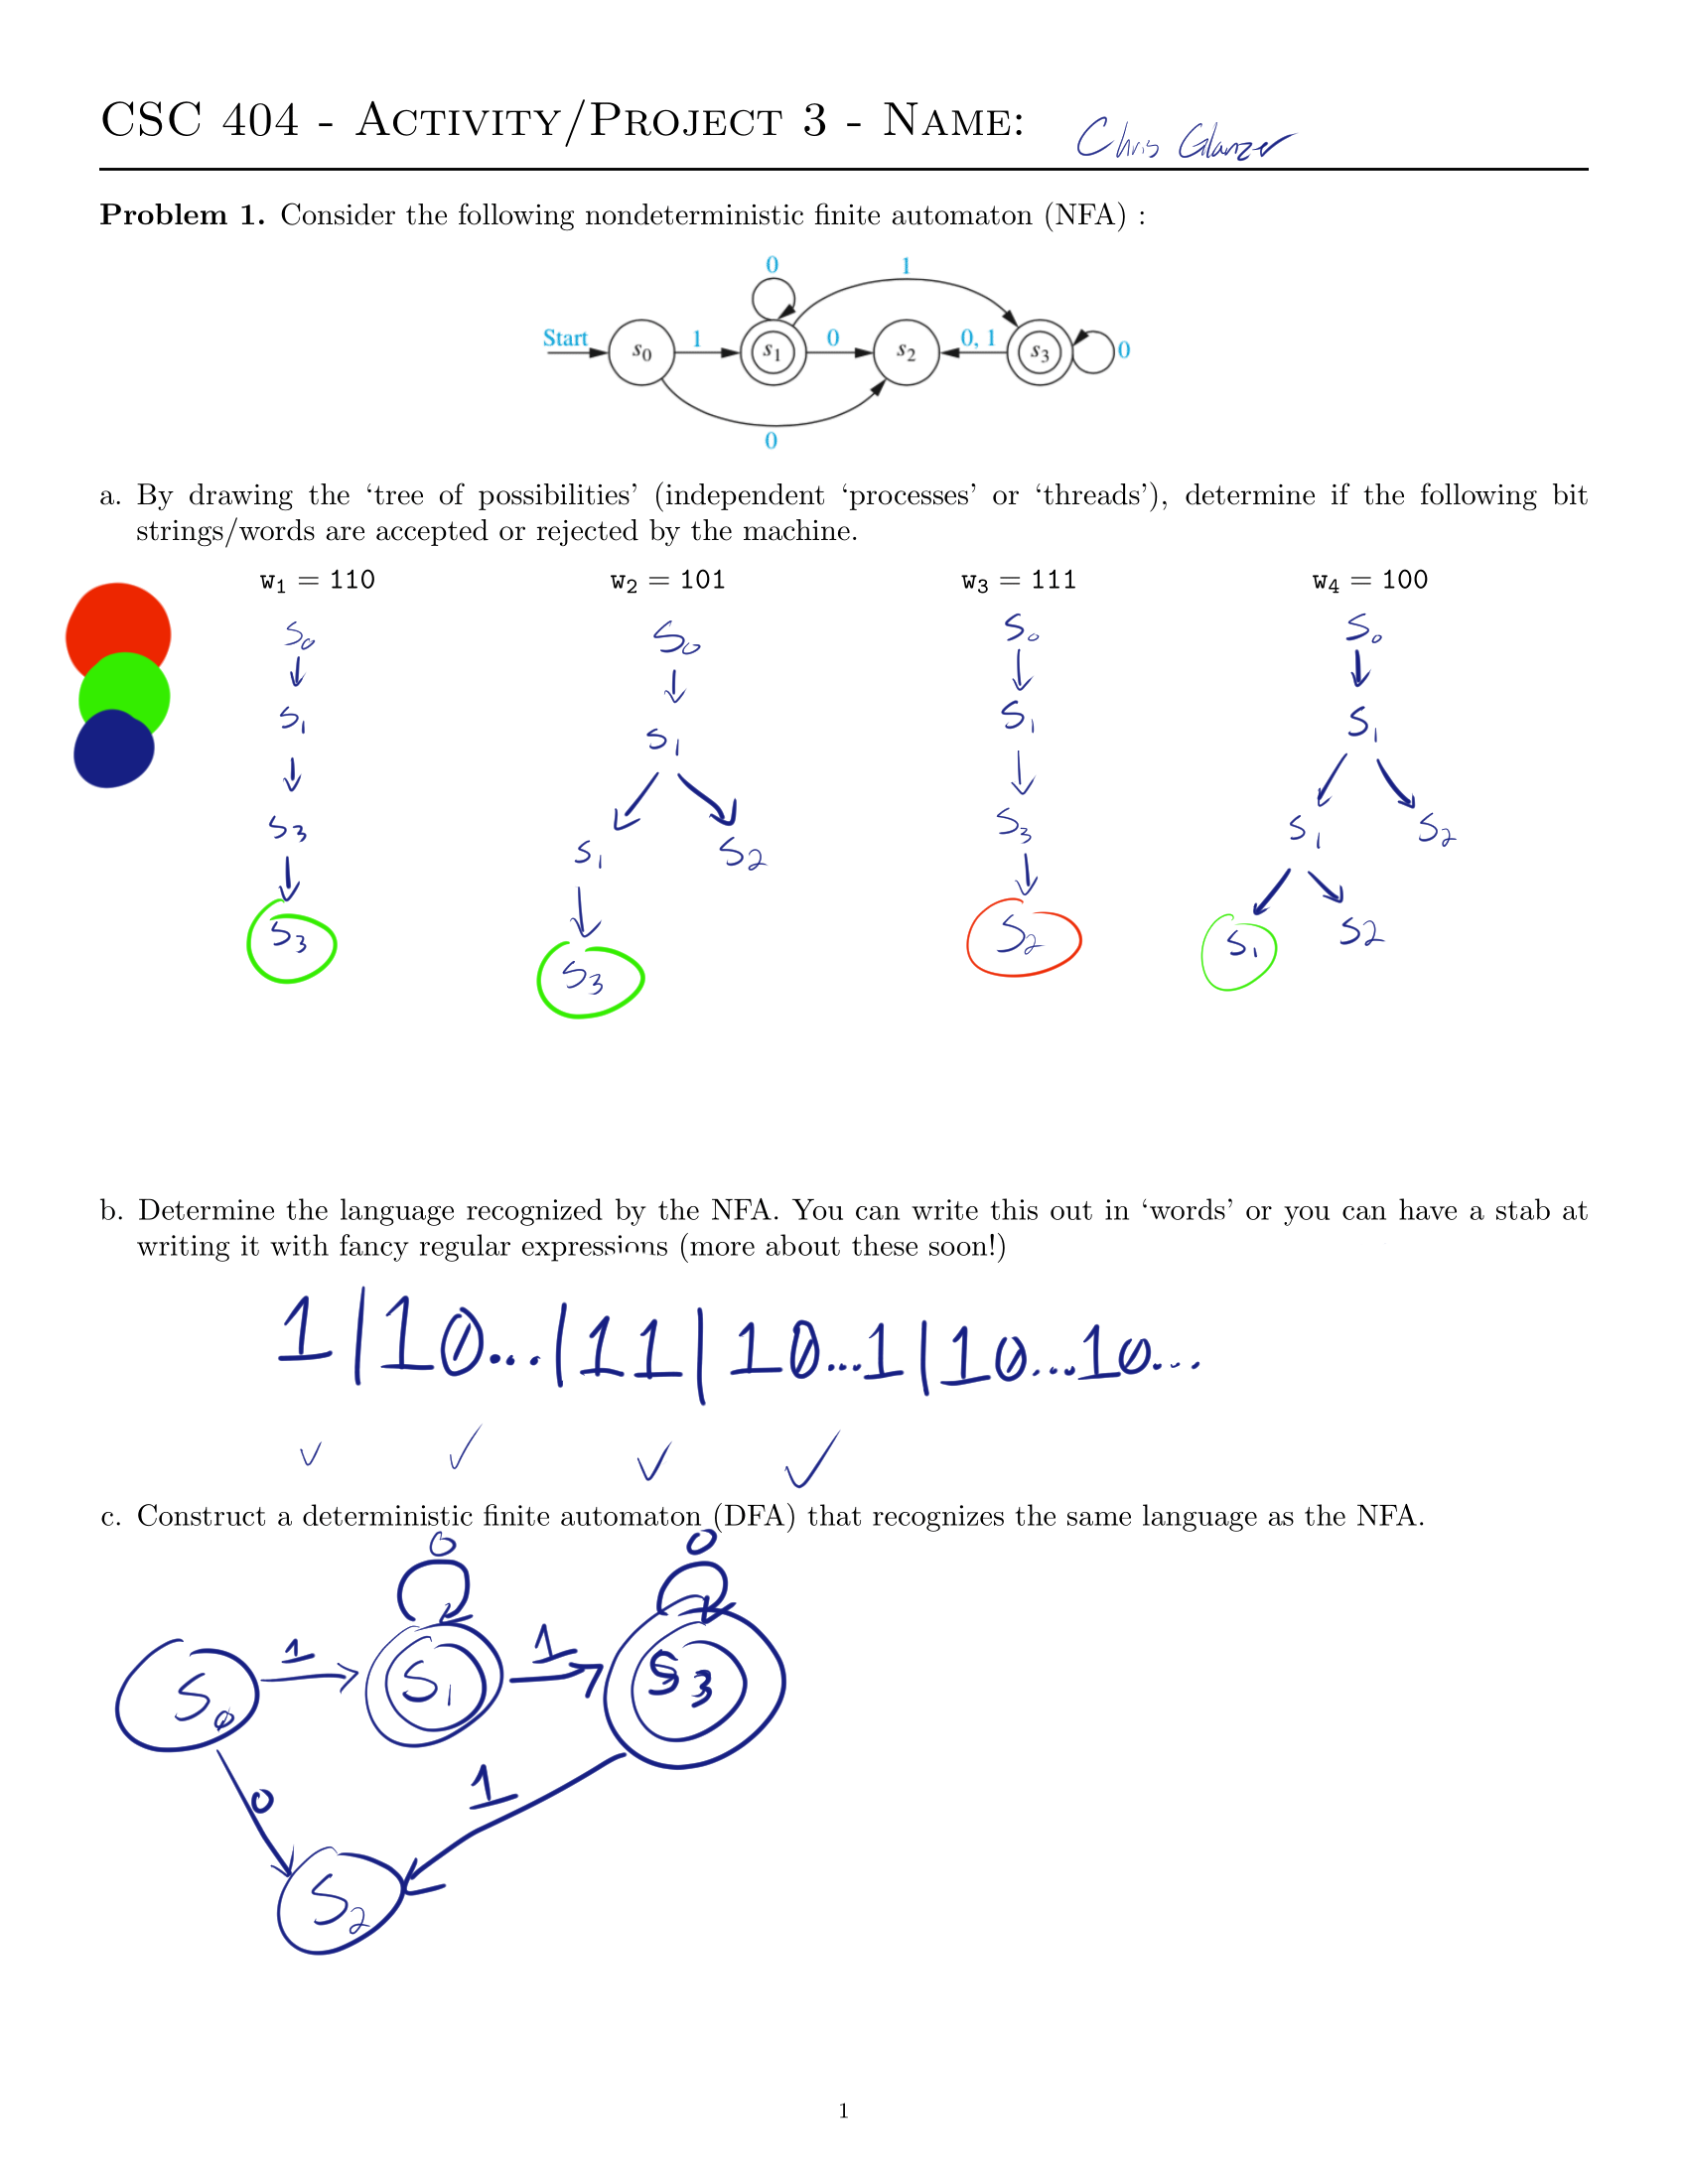 CSC 404 - ACTIVITY/PROJECT 3 - NAME: Chris Glanzer
Problem 1. Consider the following nondeterministic finite automaton (NFA) :
0 1
Start s0 1 s1 0 s2 0, 1 s3 0
0
a. By drawing the ‘tree of possibilities’ (independent ‘processes’ or ‘threads’), determine if the following bit
strings/words are accepted or rejected by the machine.
w1 = 110 w2 = 101 w3 = 111 w4 = 100
S0 S0 S0 S0
S1 S1 S1 S1
S3 S1 S2 S3 S1 S2
S3 S3 S2 S1 S2
b. Determine the language recognized by the NFA. You can write this out in ‘words’ or you can have a stab at
writing it with fancy regular expressions (more about these soon!)
1|10...|11|10...1|10...10...
✓ ✓ ✓ ✓
c. Construct a deterministic finite automaton (DFA) that recognizes the same language as the NFA.
0 0
S0 1 S1 1 S3
0 1
S2
1